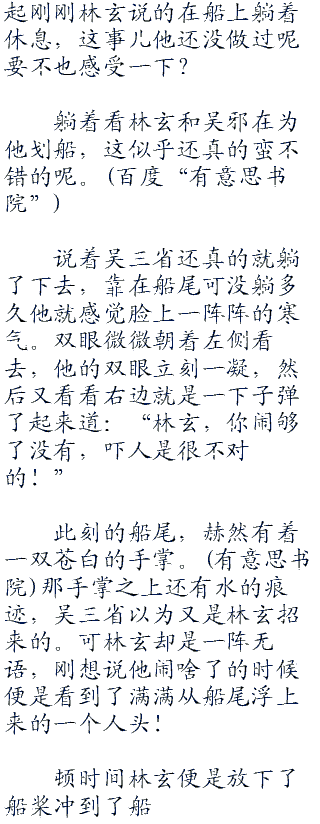 起刚刚林玄说的在船上躺着
休息，这事儿他还没做过呢
要不也感受一下？
躺着看林玄和吴邪在为
他划船，这似乎还真的蛮不
错的呢。(百度“有意思书
院”)
说着吴三省还真的就躺
了下去，靠在船尾可没躺多
久他就感觉脸上一阵阵的寒
气。双眼微微朝着左侧看
去，他的双眼立刻一凝，然
后又看看右边就是一下子弹
了起来道：“林玄，你闹够
了没有，吓人是很不对
的！”
此刻的船尾，赫然有着
一双苍白的手掌。(有意思书
院)那手掌之上还有水的痕
迹，吴三省以为又是林玄招
来的。可林玄却是一阵无
语，刚想说他闹啥了的时候
便是看到了满满从船尾浮上
来的一个人头！
顿时间林玄便是放下了
船桨冲到了船